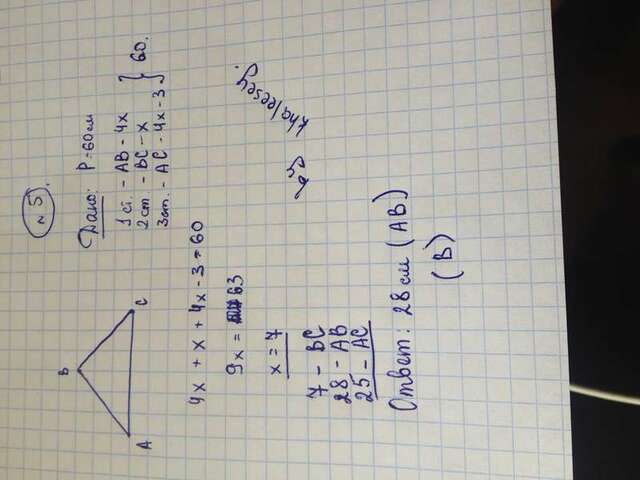 №5.
B
A
C
Дано: P=60см
1 ст. - AB - 4x
2 ст - BC - x
3 ст. - AC - 4x - 3
} 60.
4x + x + 4x - 3 = 60
9x = 63
x = 7
7 - BC
28 - AB
25 - AC
Ответ: 28 см (AB)
(B)
khaleesey.